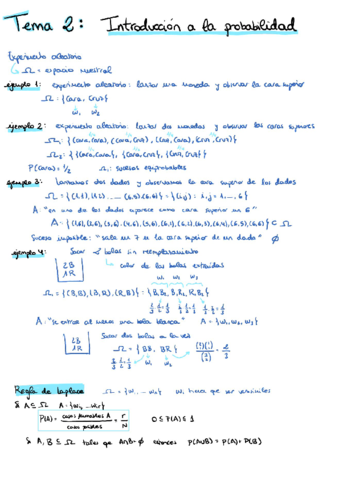 Tema 2: Introducción a la probabilidad
Experimento aleatorio
Ω = espacio muestral
ejemplo 1: experimento aleatorio: lanzar una moneda y observar la cara superior
Ω: {Cara, Cruz}
ω₁ ω₂
ejemplo 2: experimento aleatorio: lanzar dos monedas y observar las caras superiores
Ω₁: {(Cara, Cara), (Cara, Cruz), (Cruz, Cara), (Cruz, Cruz)}
Ω₂: {{Cara, Cara}, {Cara, Cruz}, {Cruz, Cruz}}
P(Cara) = 1/2 Ω₁: sucesos equiprobables
ejemplo 3: lanzamos dos dados y observamos la cara superior de los dados
Ω = {(1,1), (1,2) ... (6,5), (6,6)} = {(i,j) : i,j = 1, ... 6}
A: "en uno de los dados aparece como cara superior un 6"
A = {(1,6), (2,6), (3,6), (4,6), (5,6), (6,1), (6,2), (6,3), (6,4), (6,5), (6,6)} ⊂ Ω
Suceso imposible: "salga un 7 en la cara superior de un dado" ∅
ejemplo 4: Sacar 2 bolas sin reemplazamiento
2B
1R
color de las bolas extraídas
ω₁ ω₂ ω₃
Ω₁ = {(B,B), (B,R), (R,B)}
A: "se extrae al menos una bola blanca" A = {ω₁, ω₂, ω₃}
2B
1R
Sacar dos bolas a la vez
Ω = {BB, BR}
ω₁ ω₂
Regla de Laplace Ω = {ω₁, ... ω_N}
Si A ⊆ Ω A = {ω₁, ... ω_r}
P(A) = casos favorables A / casos posibles = r/N 0 ≤ P(A) ≤ 1
Si A, B ⊆ Ω tales que A∩B = ∅ entonces P(A∪B) = P(A) + P(B)